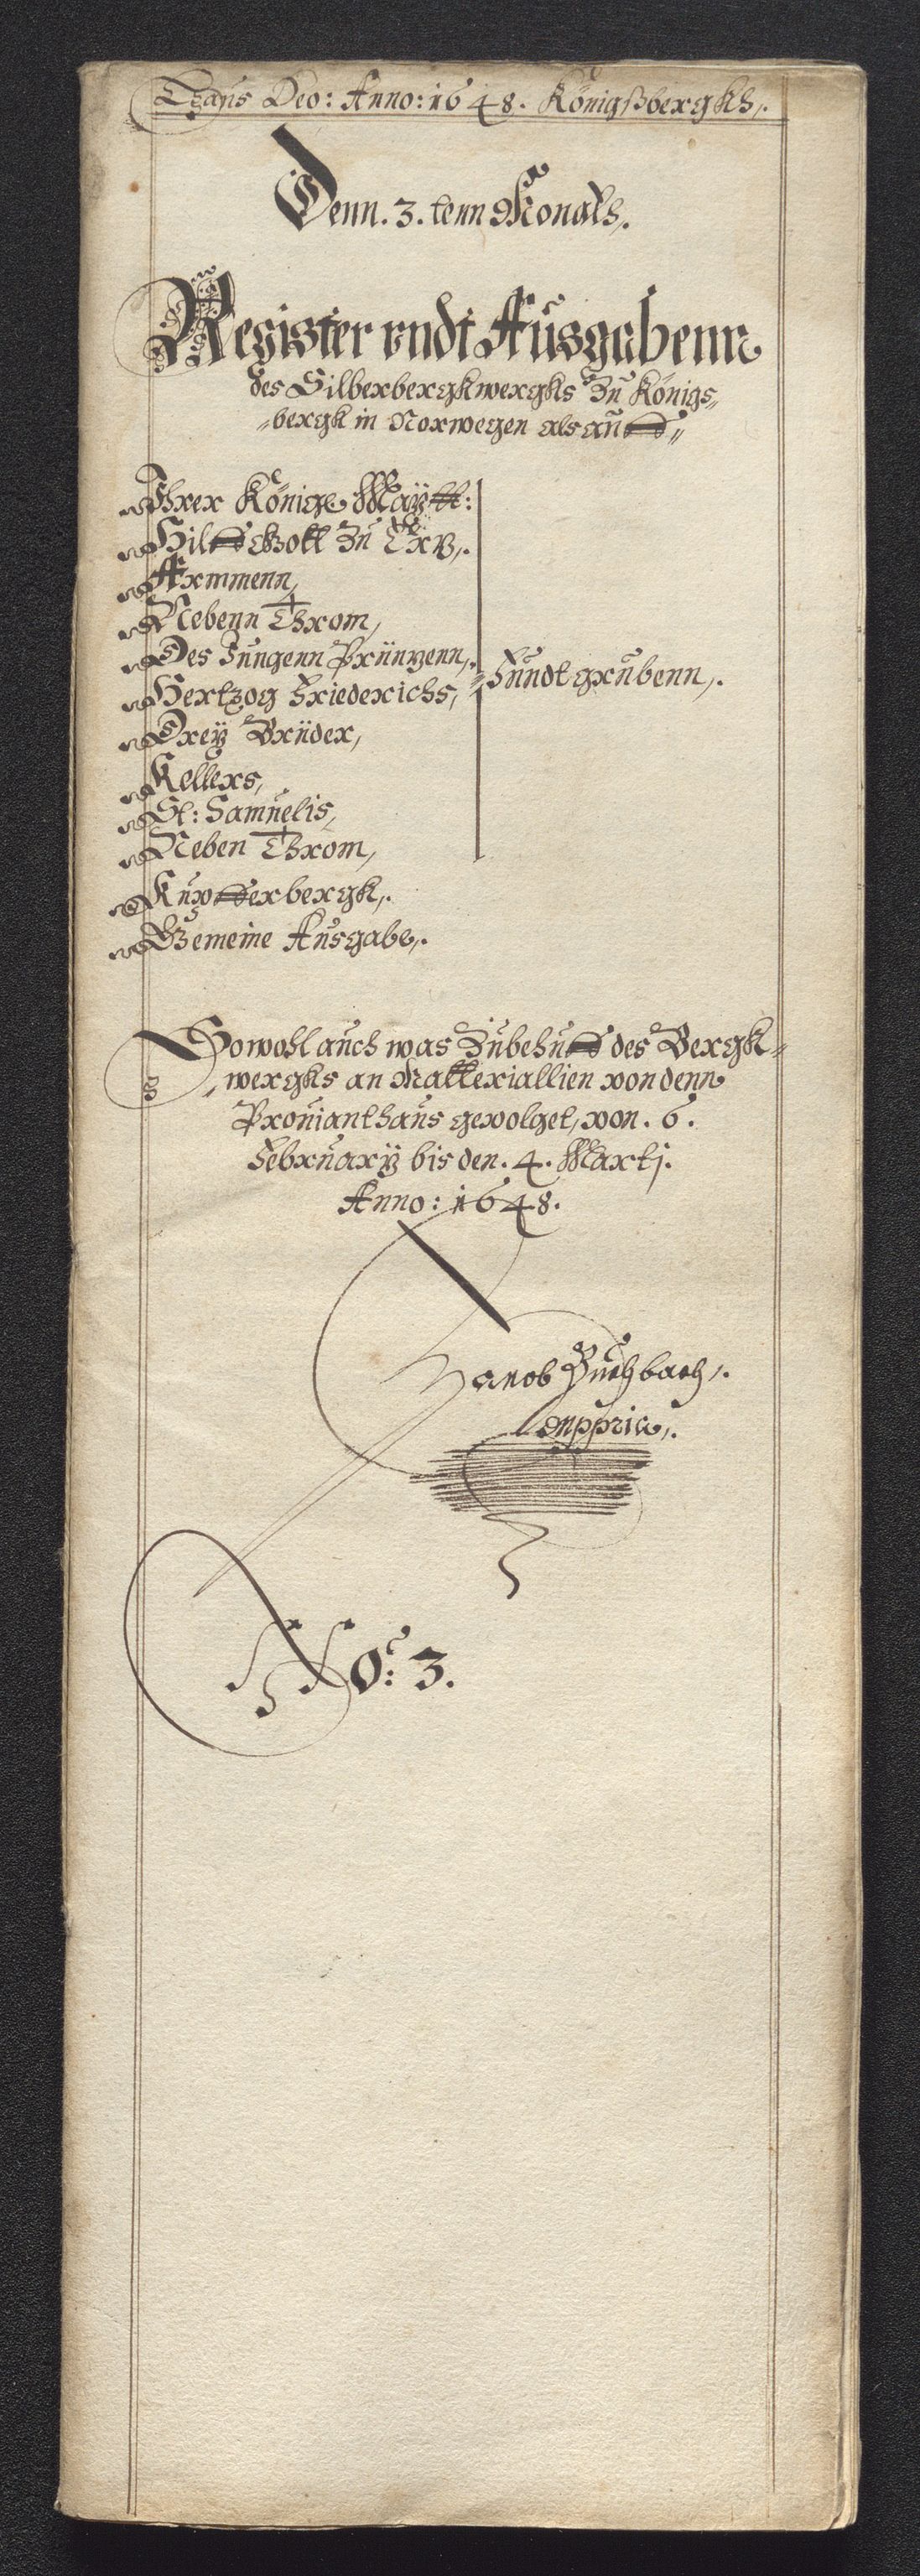 Laus Deo: Anno: 1648. Königßbergkh,.
Denn. 3. tenn Monaths,.
Register vndt Ausgabenn
des Silberbergkwergks Zu Königs„
„bergk in Norwegen als auff„
Ihrer Königl Mäytt:
Hilff Gott Zu
Armmenn,
Nebenn Throm,
Des Jungenn Prünzenn,.
Hertzog Friederichs,
Fundtgrubenn,.
Dreÿ Brüder,
Kellers,
St: Samuelis,
Neben Throm,
Kupfferbergk,.
Gemeine Ausgabe,.
Sowohl auch was Zubehuff des Bergk„
wergks an Matteriallien von denn
Prouianthaus gevolget, von. 6.
Februarÿ bis den. 4. Martj.
Anno: 1648.
Jacob Buchbach,.
mppria,.
No: 3.